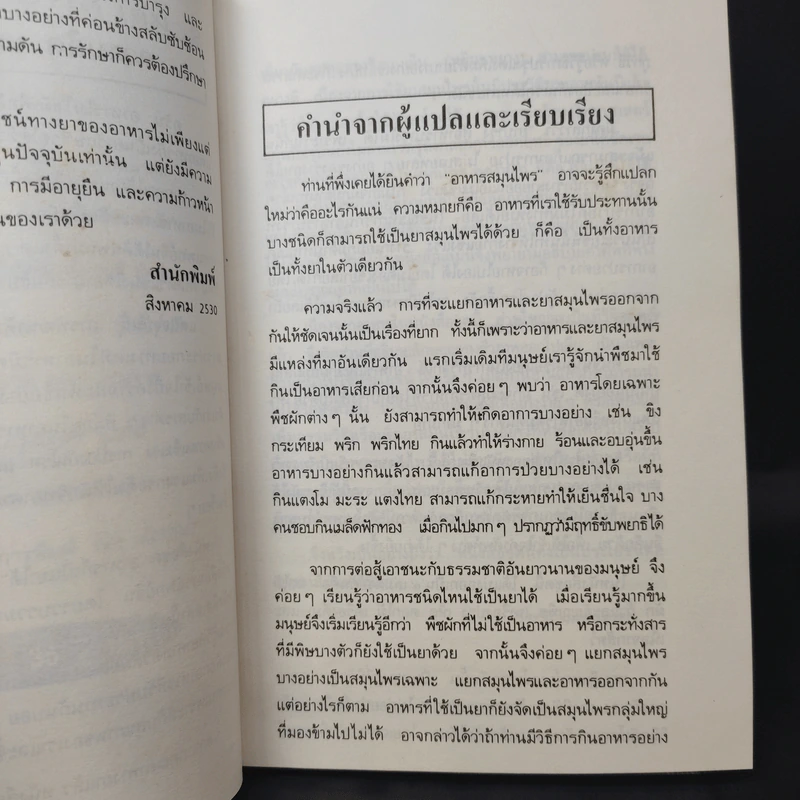 การบำรุง และ
บางอย่างที่ค่อนข้างสลับซับซ้อน
ามดัน การรักษาก็ควรต้องปรึกษา
ชน์ทางยาของอาหารไม่เพียงแต่
ุนปัจจุบันเท่านั้น แต่ยังมีความ
การมีอายุยืน และความก้าวหน้า
นของเราด้วย
สำนักพิมพ์
สิงหาคม 2530
คำนำจากผู้แปลและเรียบเรียง
ท่านที่พึ่งเคยได้ยินคำว่า "อาหารสมุนไพร" อาจจะรู้สึกแปลก
ใหม่ว่าคืออะไรกันแน่ ความหมายก็คือ อาหารที่เราใช้รับประทานนั้น
บางชนิดก็สามารถใช้เป็นยาสมุนไพรได้ด้วย ก็คือ เป็นทั้งอาหาร
เป็นทั้งยาในตัวเดียวกัน
ความจริงแล้ว การที่จะแยกอาหารและยาสมุนไพรออกจาก
กันให้ชัดเจนนั้นเป็นเรื่องที่ยาก ทั้งนี้ก็เพราะว่าอาหารและยาสมุนไพร
มีแหล่งที่มาอันเดียวกัน แรกเริ่มเดิมทีมนุษย์เรารู้จักนำพืชมาใช้
กินเป็นอาหารเสียก่อน จากนั้นจึงค่อย ๆ พบว่า อาหารโดยเฉพาะ
พืชผักต่าง ๆ นั้น ยังสามารถทำให้เกิดอาการบางอย่าง เช่น ขิง
กระเทียม พริก พริกไทย กินแล้วทำให้ร่างกาย ร้อนและอบอุ่นขึ้น
อาหารบางอย่างกินแล้วสามารถแก้อาการป่วยบางอย่างได้ เช่น
กินแตงโม มะระ แตงไทย สามารถแก้กระหายทำให้เย็นชื่นใจ บาง
คนชอบกินเมล็ดฟักทอง เมื่อกินไปมาก ๆ ปรากฏว่ามีฤทธิ์ขับพยาธิได้
จากการต่อสู้เอาชนะกับธรรมชาติอันยาวนานของมนุษย์ จึง
ค่อย ๆ เรียนรู้ว่าอาหารชนิดไหนใช้เป็นยาได้ เมื่อเรียนรู้มากขึ้น
มนุษย์จึงเริ่มเรียนรู้อีกว่า พืชผักที่ไม่ใช้เป็นอาหาร หรือกระทั่งสาร
ที่มีพิษบางตัวก็ยังใช้เป็นยาด้วย จากนั้นจึงค่อย ๆ แยกสมุนไพร
บางอย่างเป็นสมุนไพรเฉพาะ แยกสมุนไพรและอาหารออกจากกัน
แต่อย่างไรก็ตาม อาหารที่ใช้เป็นยาก็ยังจัดเป็นสมุนไพรกลุ่มใหญ่
ที่มองข้ามไปไม่ได้ อาจกล่าวได้ว่าถ้าท่านมีวิธีการกินอาหารอย่าง